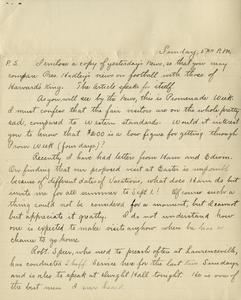 Sunday, 5 30 P.M.
P.S. I enclose a copy of yesterday's News, so that you may
compare Pres. Hadley's views on football with those of
Harvard's King. The article speaks for itself.
As you will see by the News, this is Promenade Week.
I must confess that the fair visitors are on the whole pretty
sad, compared to Western standards. Would it interest
you to know that $200 is a low figure for getting through
Prom Week (four days)?
Recently I have had letters from Ham and Edison.
On finding that our proposed visit at East is
because of different dates of vacations, what does Ham do but
invite me for all summer to Sept.! Of course such a
thing could not be considered for a moment, but I cannot
but appreciate it greatly. I do not understand how
one is expected to make visits anyhow when he has a
chance to go home.
Robt. Speer, who used to preach often at Lawrenceville,
has conducted Service here for the last two Sundays,
and is also to speak at Dwight Hall tonight. He is one of
the best men I ever heard.